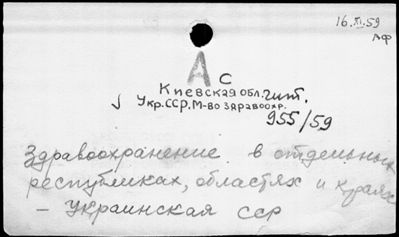 16.XI.59
АФ
А С
Киевская обл. гит.
Укр.ССР, М-во здравоохр.
955/59
Здравоохранение в отдельных
республиках, областях и краях
– Украинская ССР